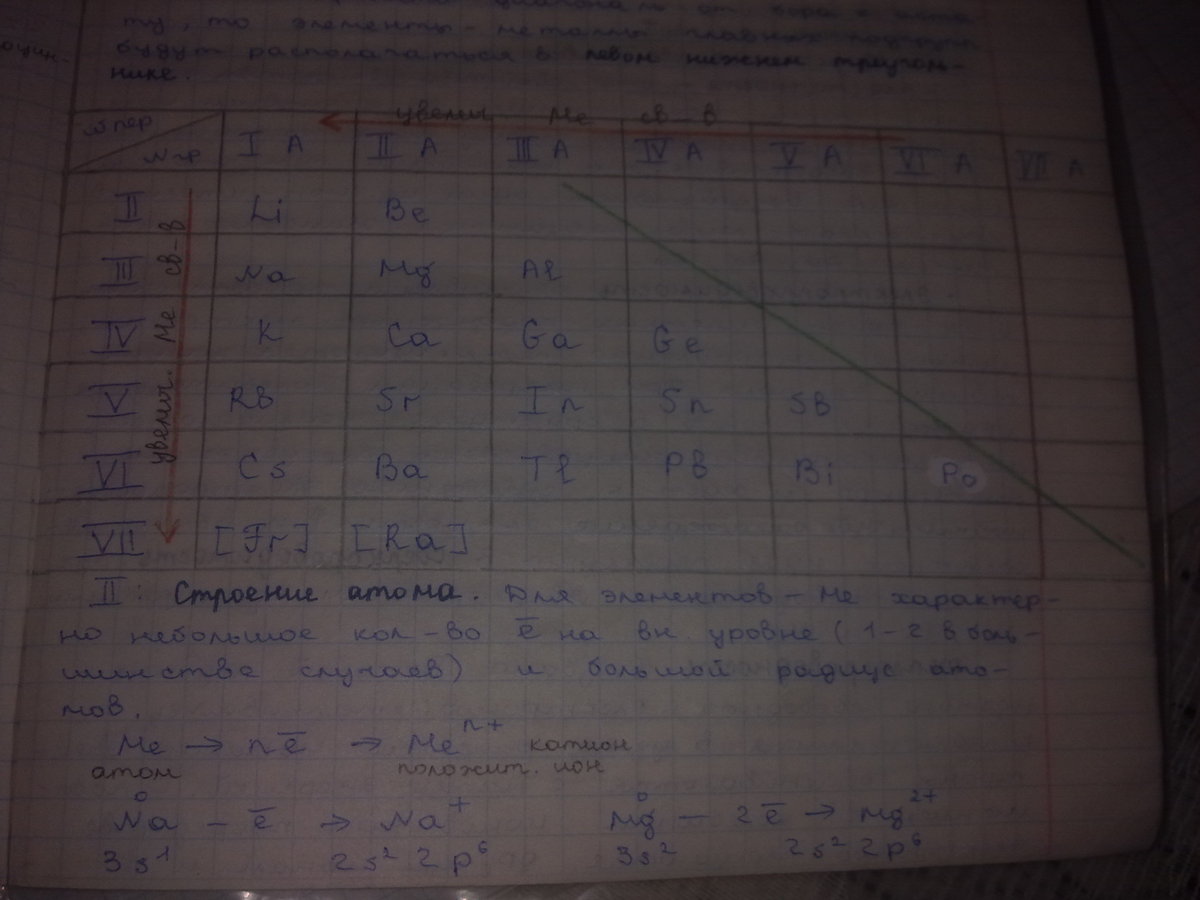 ту, то элементы - металлы главных подгрупп
будут располагаться в левом нижнем треуголь-
нике.
увелич. Ме св-в
N пер
N гр
I A II A III A IV A V A VI A VII A
II Li Be
III Na Mg Al
IV K Ca Ga Ge
V Rb Sr In Sn Sb
VI Cs Ba Tl Pb Bi Po
VII [Fr] [Ra]
увелич. Ме св-в
II: Строение атома. Для элементов - Ме характер-
но небольшое кол-во ē на вн. уровне (1-2 в боль-
шинстве случаев) и большой радиус ато-
мов.
Me → nē → Meⁿ⁺ катион
атом положит. ион
Na⁰ - ē → Na⁺ Mg⁰ - 2ē → Mg²⁺
3s¹ 2s² 2p⁶ 3s² 2s² 2p⁶